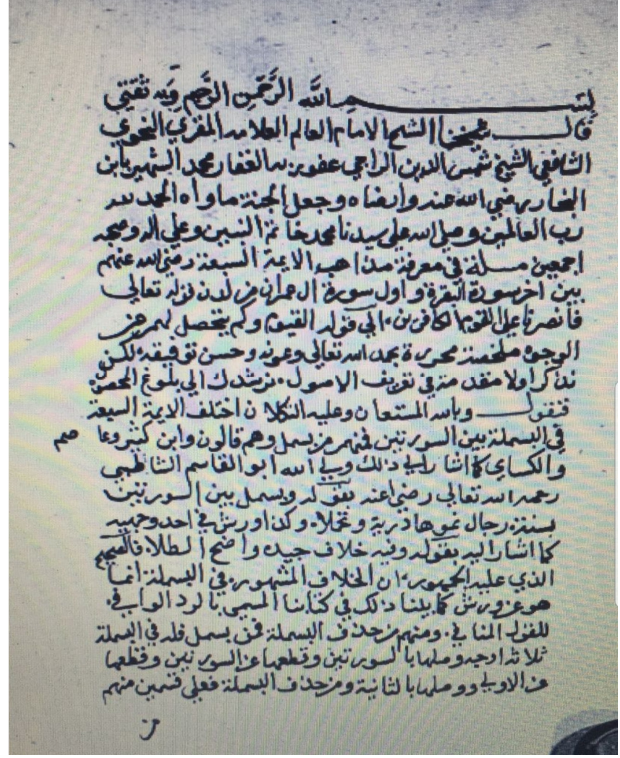 بسم الله الرحمن الرحيم وبه ثقتي
قال شيخنا الشيخ الامام العالم العلامة المقري النحوي
الشافعي الشيخ شمس الدين الراجي عفو ربه الغفار محمد الشهير بابن
النجار رضي الله عنه وارضاه وجعل الجنة ماواه الحمد لله
رب العالمين وصلى الله على سيدنا محمد خاتم النبين وعلى اله وصحبه
اجمعين مسلة في معرفة مذاهب الايمة السبعة رضي الله عنهم
بين اخر سورة البقرة واول سورة ال عمران من لدن قوله تعالى
فانصرنا على القوم الكافرين الى قوله القيوم وكم يتحصل لهم من
الوجوه ملخصة محررة بحمد الله تعالى وعونه وحسن توفيقه لكن
نذكر اولا مقدمة في تعريف الاصول ترشدك الى بلوغ
فنقول وبالله المستعان وعليه التكلان اختلف الايمة السبعة
في البسملة بين السورتين فمنهم من بسمل وهم قالون وابن كثير وعاصم
والكساي كما اشار الى ذلك ولي الله ابو القاسم الشاطبي
رحمه الله تعالى رضي عنه بقوله وبسمل بين السورتين
بسنة رجال نموها درية وتحملا وكذا ورش في احد وجهيه
كما اشار اليه بقوله وفيه خلاف جيده واضح الطلا فالصحيح
الذي عليه الجمهور ان الخلاف المشهور في البسملة انما
هو عن ورش كما بينا ذلك في كتابنا المسمى بالرد الوافي
للقول المنافي ومنهم من حذف البسملة فمن بسمل فله في البسملة
ثلاثة اوجه وصلها بالسورتين وقطعها عن السورتين وقطعها
عن الاولى ووصلها بالثانية ومن حذف البسملة فعلى قسمين منهم
من